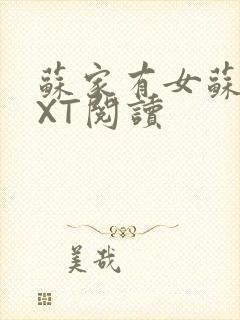 蘇家有女蘇
XT閱讀
美哉